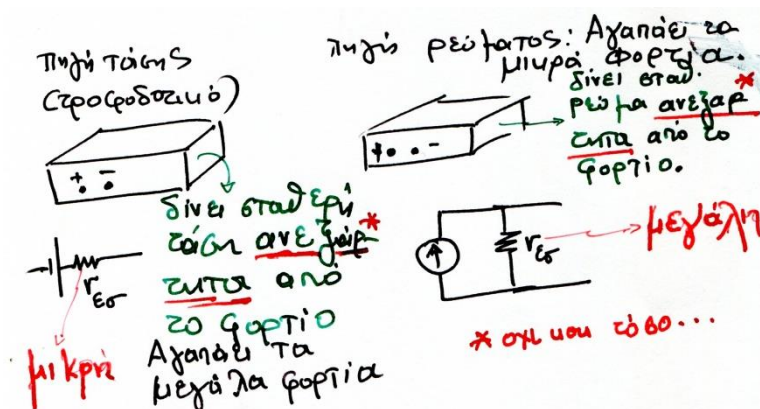 πηγή τάσης
(τροφοδοτικό)
+ -
δίνει σταθερή
τάση ανεξάρ*
τητα από
το φορτίο
rεσ
μικρή
Αγαπάει τα
μεγάλα φορτία
πηγή ρεύματος: Αγαπάει τα
μικρά φορτία.
δίνει σταθ.
ρεύμα ανεξαρ*
τητα από το
φορτίο.
+ -
rεσ
μεγάλη
* οχι και τόσο...